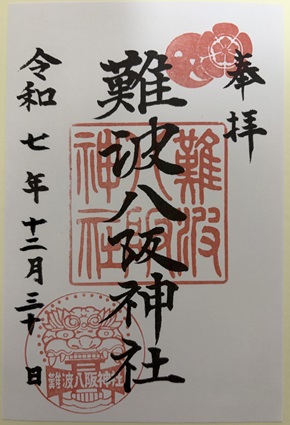 奉拝
難波八阪神社
難波
八阪
神社
令和七年十二月三十日
難波八阪神社